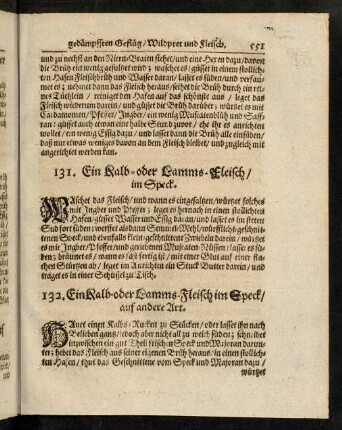 gedämpfften Geflüg / Wildpret und Fleisch. 551
und zu nechst an den Niern-Braten stehet / und eine Heren dazu / davon
die Brüh ein wenig gesultzet wird ; waschet es / güsset in einem stollich-
ten Hafen Fleischbrüh und Wasser daran / lasset es süden / und verfaumt
es ; nehmet dann das Fleisch heraus / sehet die Brüh durch ein
reines Tüchlein / reiniget den Hafen auf das schönste aus / leget das
Fleisch wiederum darein / und güsset die Brüh darüber ; würtzet es mit
Cardamomen / Pfeffer / Ingber / ein wenig Muscatenblüh und Saff-
ran : güsset auch etwan eine halbe Stund zuvor / ehe ihr es anrichten
wollet / ein wenig Essig dazu / und lasset dann die Brüh alle einsüden /
daß nur etwas weniges davon an dem Fleisch bleibet / und zugleich mit
angerichtet werden kan.
131. Ein Kalb- oder Lamms-Fleisch /
im Speck.
WAschet das Fleisch / und wann es eingesaltzen / würtzet solches
mit Ingber und Pfeffer ; leget es hernach in einen stollichten
Hafen / güsset Wasser und Essig daran / und lasset es im steten
Sud fort süden : werffet alsdann Semmel-Mehl / würfflicht-geschnit-
tenen Speck / und ebenfalls klein-geschnittene Zwiebeln darein / würtzet
es mit Ingber / Pfeffer / und geriebenen Muscaten-Nüssen / lasset es sü-
den ; bräunet es / wann es fast fertig ist / mit einer Glut auf einer fla-
chen Stürtzen ab / leget im Anrichten ein Stuck Butter darein / und
traget es in einer Schüssel zu Tisch.
132. Ein Kalb- oder Lamms-Fleisch im Speck /
auf andere Art.
HAuet einen Kalbs-Rucken zu Stücken / oder lasset ihn nach
Belieben gantz / doch aber nicht all zu weich süden ; schneidet
inzwischen ein gut Theil frischen Speck und Majoran darun-
ter ; hebet das Fleisch aus seiner eigenen Brüh heraus / in einen stollich-
ten Hafen / thut das Geschnittene vom Speck und Majoran dazu /
würtzet